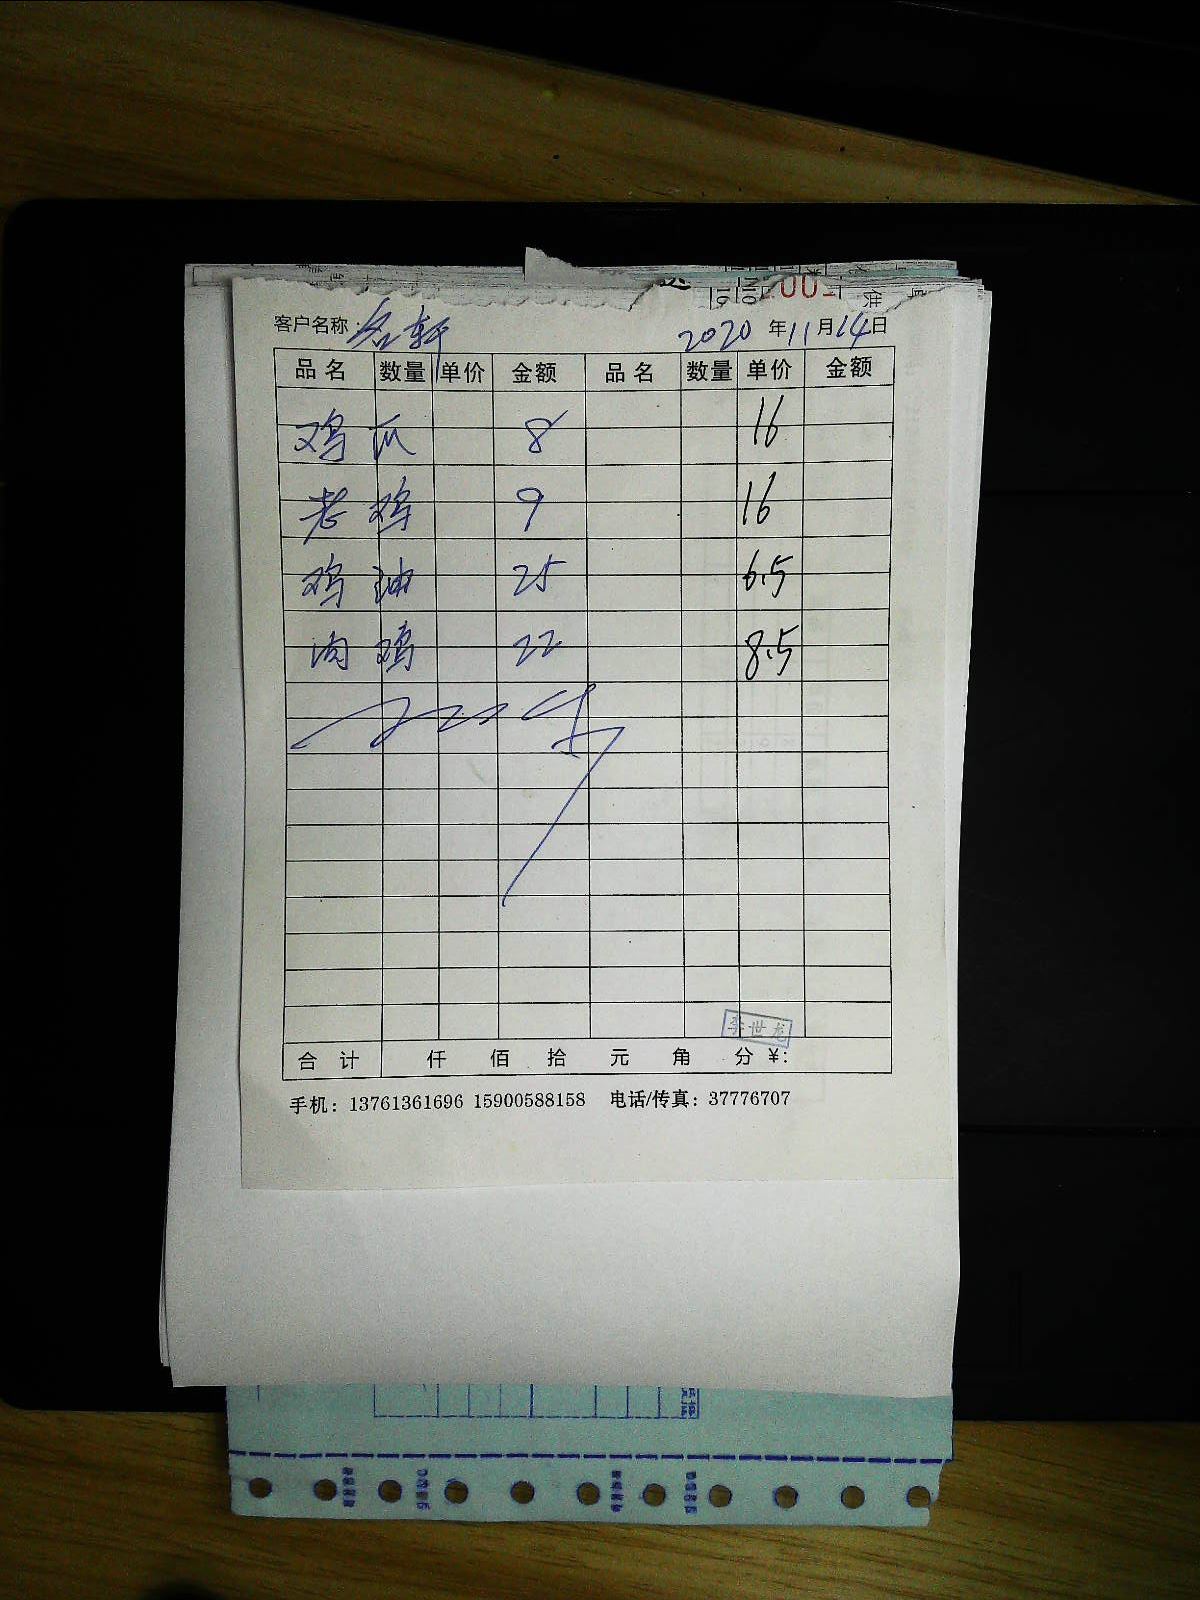 客户名称：名轩 2020年11月14日
品名 数量 单价 金额 品名 数量 单价 金额
鸡爪 8 16
老鸡 9 16
鸡油 25 6.5
肉鸡 22 8.5
李世龙
合计 仟 佰 拾 元 角 分 ¥:
手机：13761361696 15900588158 电话/传真：37776707